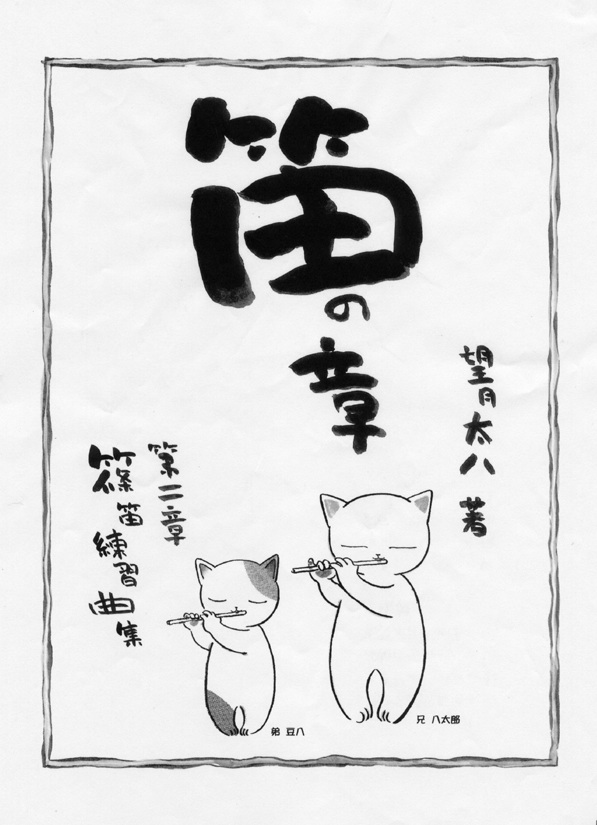 笛の章
望月太八 著
第二章
篠笛練習曲集
兄 八太郎
弟 豆八